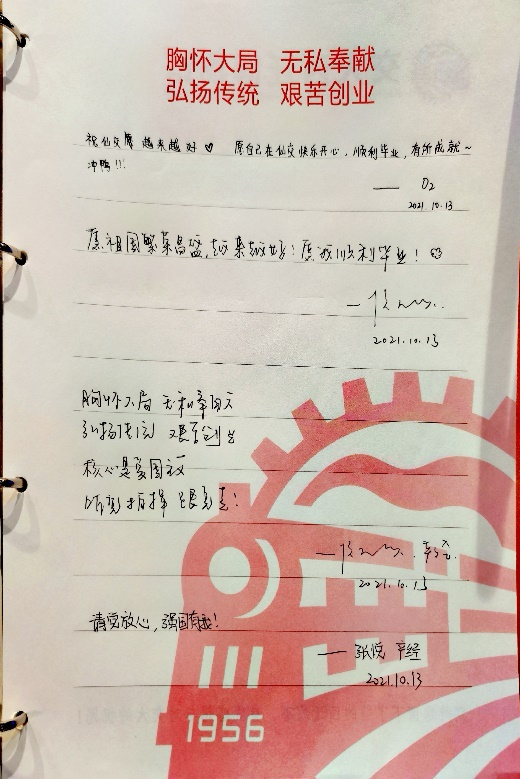 胸怀大局 无私奉献
弘扬传统 艰苦创业
祝仙交 越来越好 ♡ 愿自己在仙交快乐开心，顺利毕业，有所成就~
冲鸭!!!
— O2
2021.10.13
愿祖国繁荣昌盛，越来越好！愿我顺利毕业！
2021.10.13
胸怀大局 无私奉献
弘扬传统 艰苦创业
核心是爱国主义
听党指挥跟党走！
2021.10.13
请党放心，强国有我！
— 张悦 辛经
2021.10.13
1956